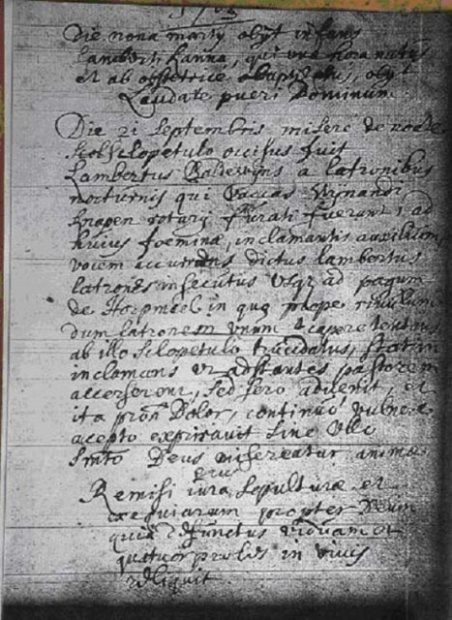 Die nona marty obÿt infans
lamberti hanna, qui una hora natus
et ab obstetrice obaptisatus, obÿt
Laudate pueri Dominum.
Die 21 Septembris miserè de nocte
sclopetulo occisus fuit
Lambertus Baldewÿns a latronibus
nocturnis qui vaccas Wÿnandi
knapen furati fuerunt, ad
huius foemina, inclamantis auxilium
vocem accurrens dictus lambertus
latrones insecutus usq ad pagum
de Horpmael in quo prope rivulum
dum latronem unum capere tentat
ab illo sclopetulo trucidatus, statim
inclamans ut adstantes pastorem
accerserent, sed sero advenit, et
ita Dolor, continuò vulnere
acepto expiravit sine ullo
Smto Deus misereatur animae
eius
Remisi iura sepulturae et
exequiarum propter Deum
quia defunctus viduam et
quatuor proles in vivis
reliquit